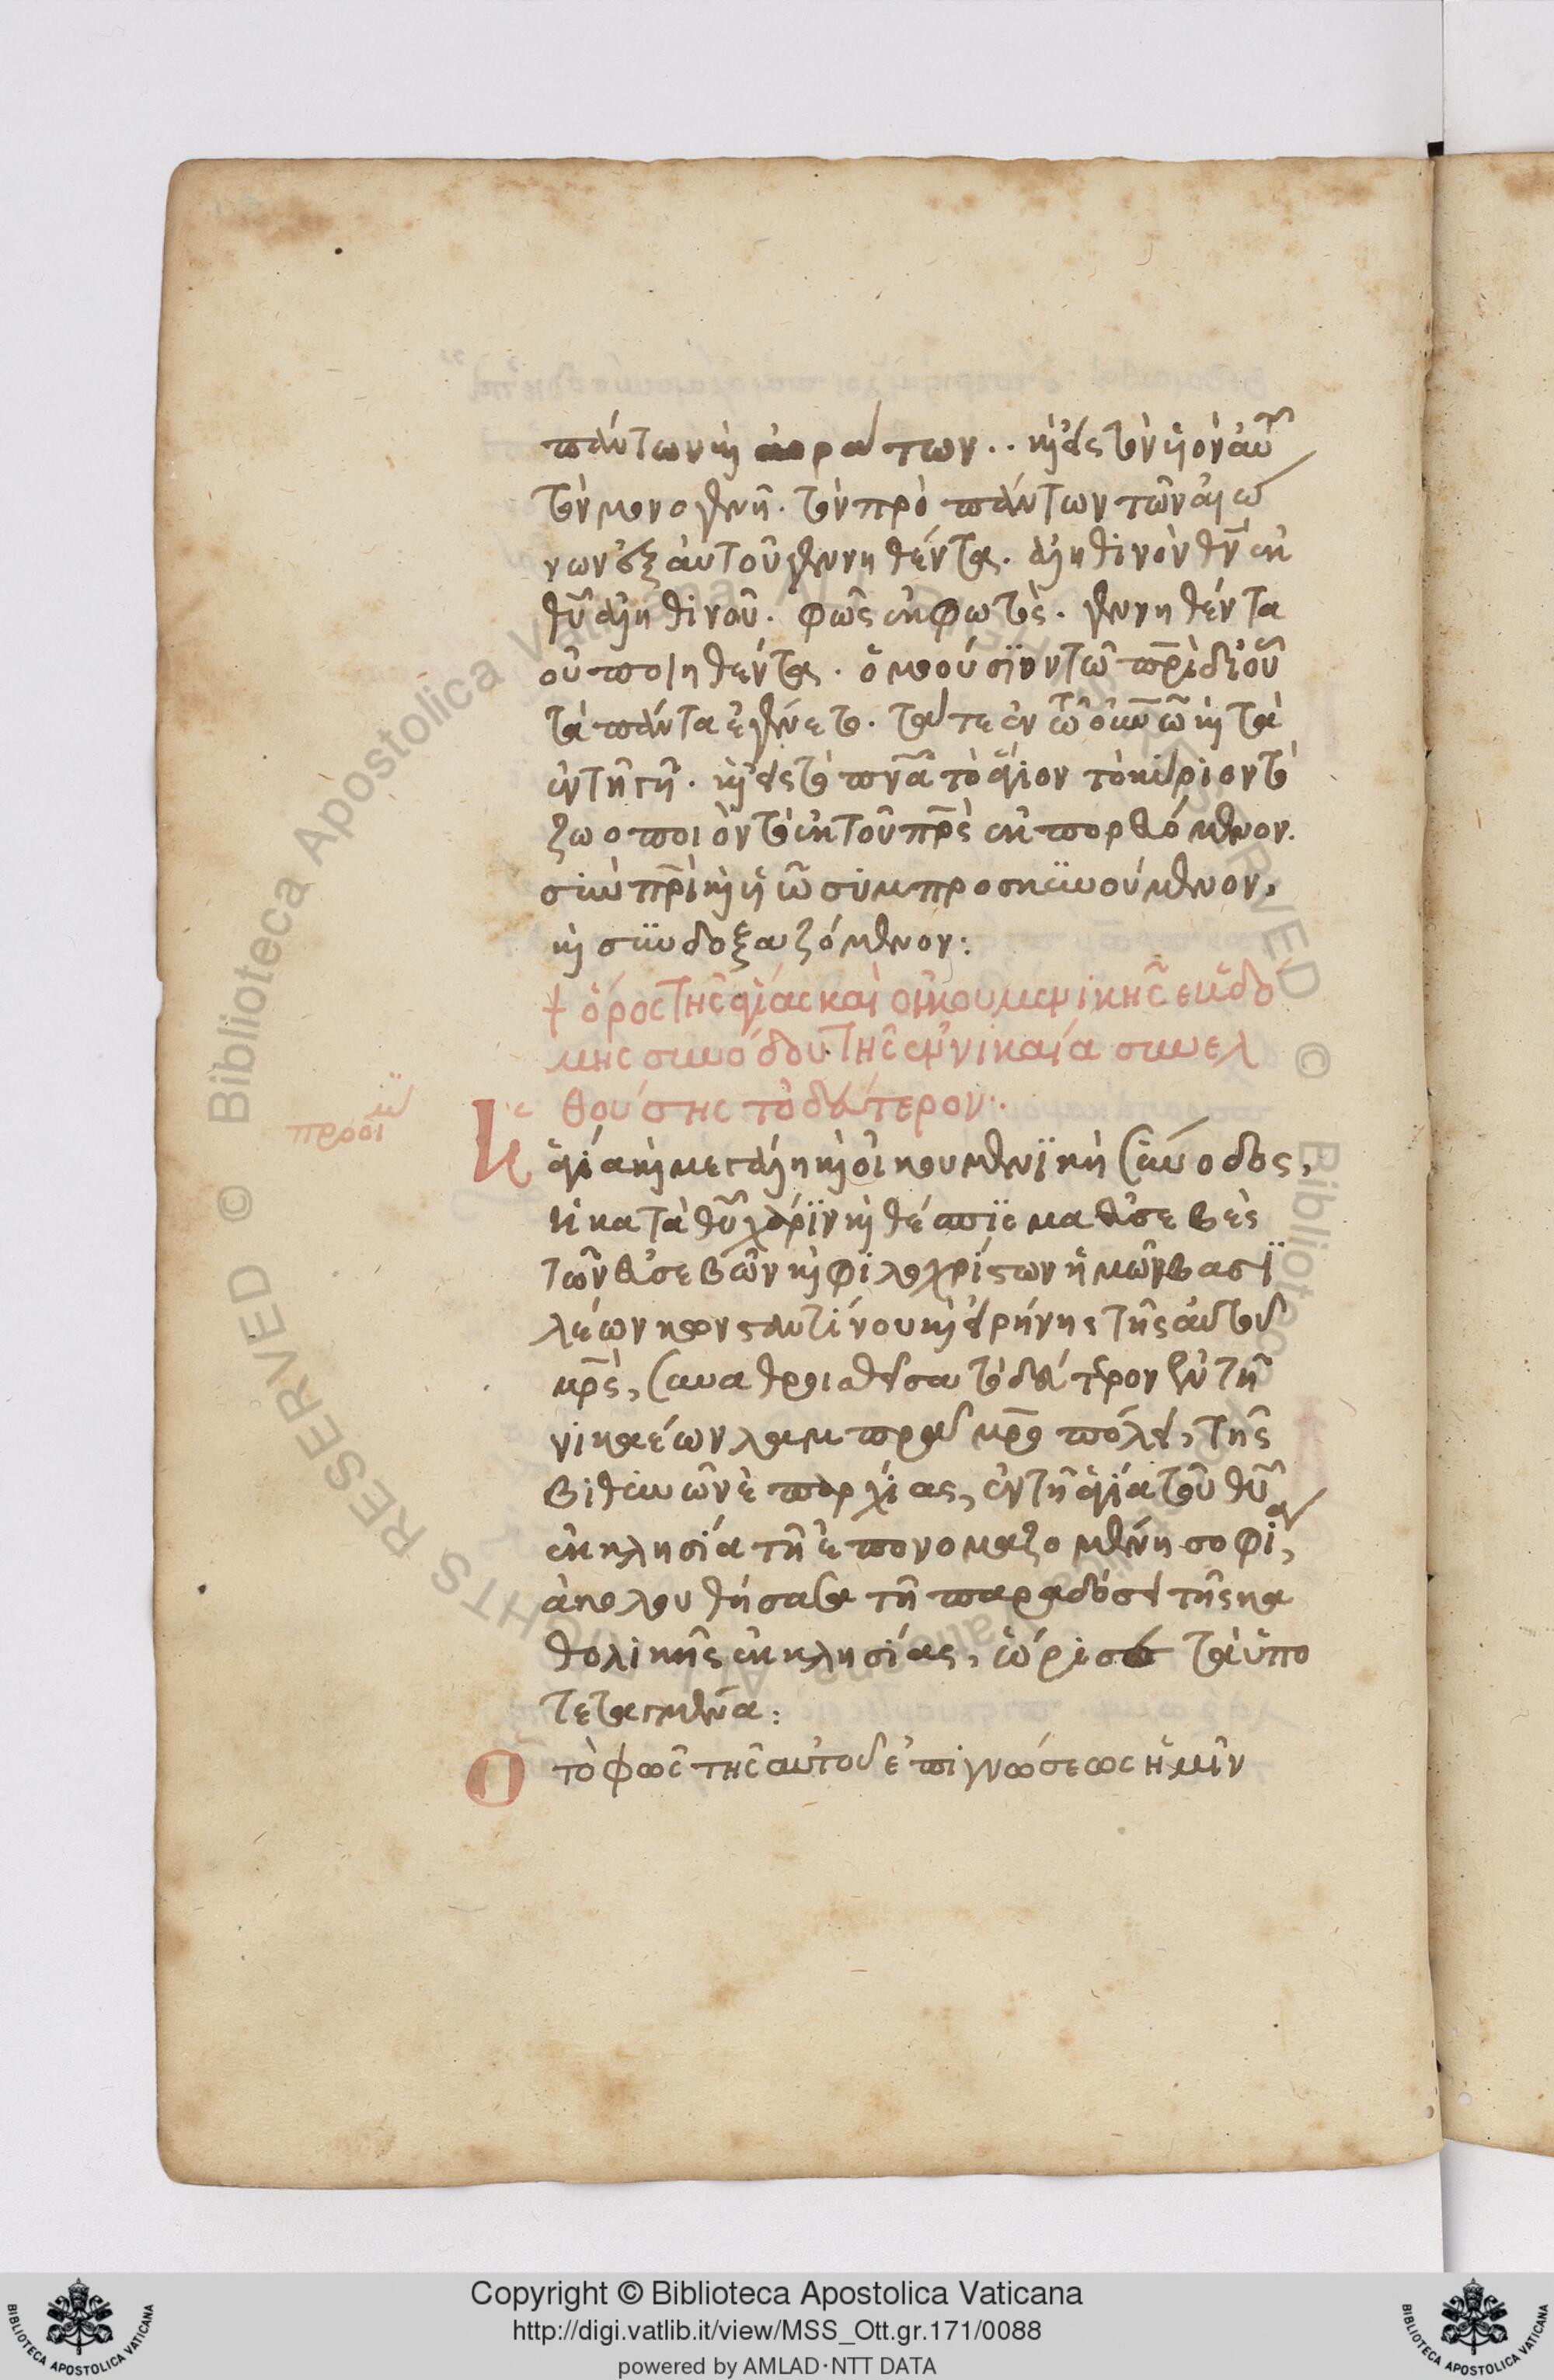 πάντων κ(αὶ) ἀοράτων·· κ(αὶ) εἰς τὸν ὑ̈ὸν αὐτοῦ
τὸν μονογενῆ· τὸν πρὸ πάντων τῶν αἰώ
νων ἐξ αὐτοῦ γεννηθέντα· ἀληθινὸν θν̅ ἐκ
θυ̅ ἀληθινοῦ· φῶς ἐκ φωτὸς· γεννηθέντα
οὐ ποιηθέντα· ὁμοούσϊον τῶ πρι̅ δι' οὗ
τὰ πάντα ἐγένετο· τά τε ἐν τῶ οὐνω̅ κ(αὶ) τὰ
ἐν τῆ γῆ· κ(αὶ) εἰς τὸ πνα̅ τὸ ἅγιον τὸ κύριον τὸ
ζωοποιὸν τὸ ἐκ τοῦ πρς̅ ἐκπορευόμενον·
σὺν πρι̅ κ(αὶ) ὑω̅ συμπροσκυνούμενον,
κ(αὶ) συνδοξαζόμενον:
+ ὅρος τῆς ἁγίας καὶ οἰκουμενικῆς ἑβδό
μης συνόδου τῆς ἐν νικαία συνελ
θούσης τὸ δεύτερον·
προοίμ
Ἡ ἁγία κ(αὶ) μεγάλη κ(αὶ) οἰκουμενϊκὴ σύνοδος,
ἡ κατὰ θυ̅ χάρϊν κ(αὶ) θέσπϊσμα εὐσεβὲς
τῶν εὐσεβῶν κ(αὶ) φιλοχρίστων ἡμῶν βασϊ
λέων κωνσταντίνου κ(αὶ) εἰρήνης τῆς αὐτοῦ
μρς̅, συναθροισθεῖσα τὸ δεύτερον ἐν τῆ
νικαέων λαμπρᾶ μρο̅πόλει, τῆς
βιθυνῶν ἐπαρχίας, ἐν τῆ ἁγία τοῦ θυ̅
ἐκκλησία τῆ ἐπονομαζομένη σοφία,
ἀκολουθήσασα τῆ παραδόσει τῆς κα
θολικῆς ἐκκλησίας, ὥρισε τὰ ὑπο
τεταγμένα:
Ὁ τὸ φῶς τῆς αὐτοῦ ἐπιγνώσεως ἡμῖν
Copyright © Biblioteca Apostolica Vaticana
http://digi.vatlib.it/view/MSS_Ott.gr.171/0088
powered by AMLAD·NTT DATA